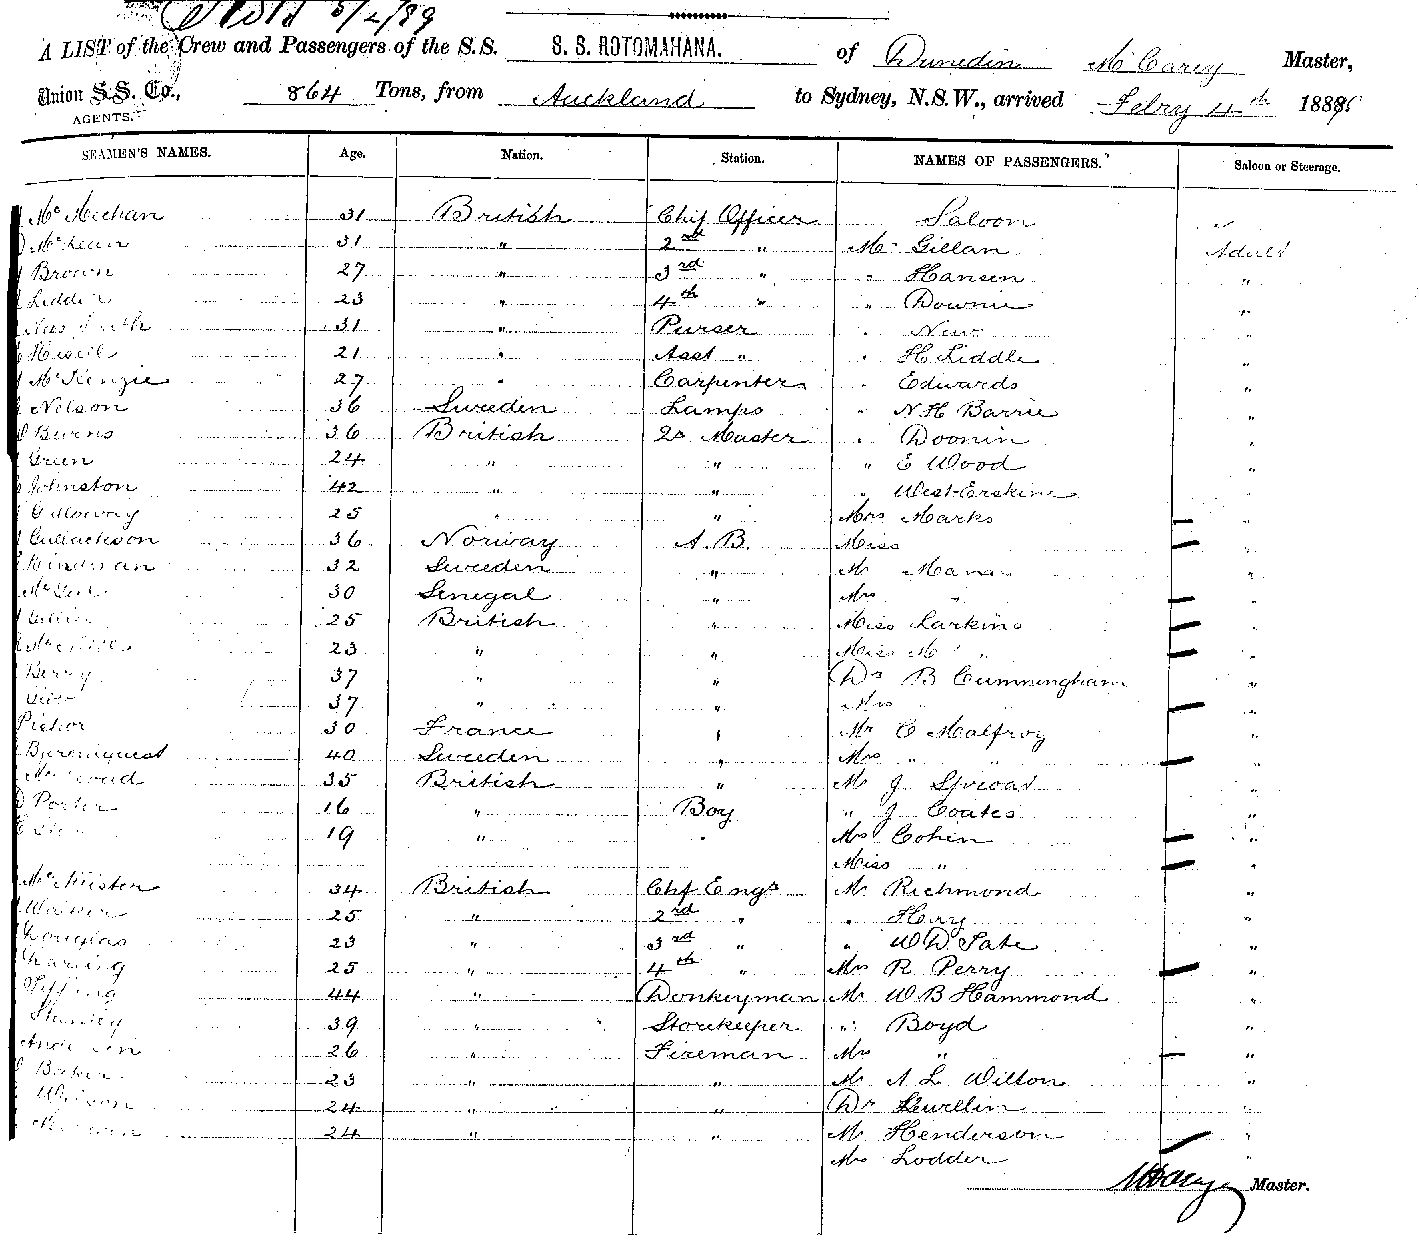 5/2/89
A LIST of the Crew and Passengers of the S.S. S. S. ROTOMAHANA. of Dunedin McCarey Master,
Union S.S. Co., 864 Tons, from Auckland to Sydney, N.S.W., arrived Febry 4th 188
AGENTS.
SEAMEN'S NAMES. Age. Nation. Station. NAMES OF PASSENGERS. Saloon or Steerage.
McMechan 31 British Chif Officer Saloon
McLean 31 " 2nd " Mr Gillan Adult
Brown 27 " 3rd " " Hansen "
23 " 4th " " Downie "
31 " Purser " New "
21 " Asst " " H Liddle "
McKenzie 27 " Carpenter " Edwards "
Nelson 36 Sweden Lamps " N H Barrie "
Burns 36 British Qr Master " Doonin "
Green 24 " " " E Wood "
Johnston 42 " " " West-Erskine "
Galloway 25 " " Mrs Marks "
36 Norway A. B. Miss "
32 Sweden " Mr "
30 Senegal " Mrs " "
25 British " Miss Larkins "
23 " " Miss M " "
Berry 37 " " Dr B Cunningham "
37 " " Mrs "
30 France " Mr C Malfroy "
40 Sweden " Mrs " " "
35 British " Mr J "
Porter 16 " Boy " J Coates "
19 " " Mrs Cohen "
Miss " "
34 British Chf Engr Mr Richmond "
Walker 25 " 2nd " " "
Douglas 23 " 3rd " " W D Tate "
25 " 4th " Mrs R Perry "
44 " Donkeyman Mr W B Hammond "
Stanley 39 " Storekeeper " Boyd "
26 " Fireman Mrs " "
23 " " Mr A L Wilton "
Wilson 24 " " Dr "
24 " " Mr Henderson "
Mrs Lodder "
Master.